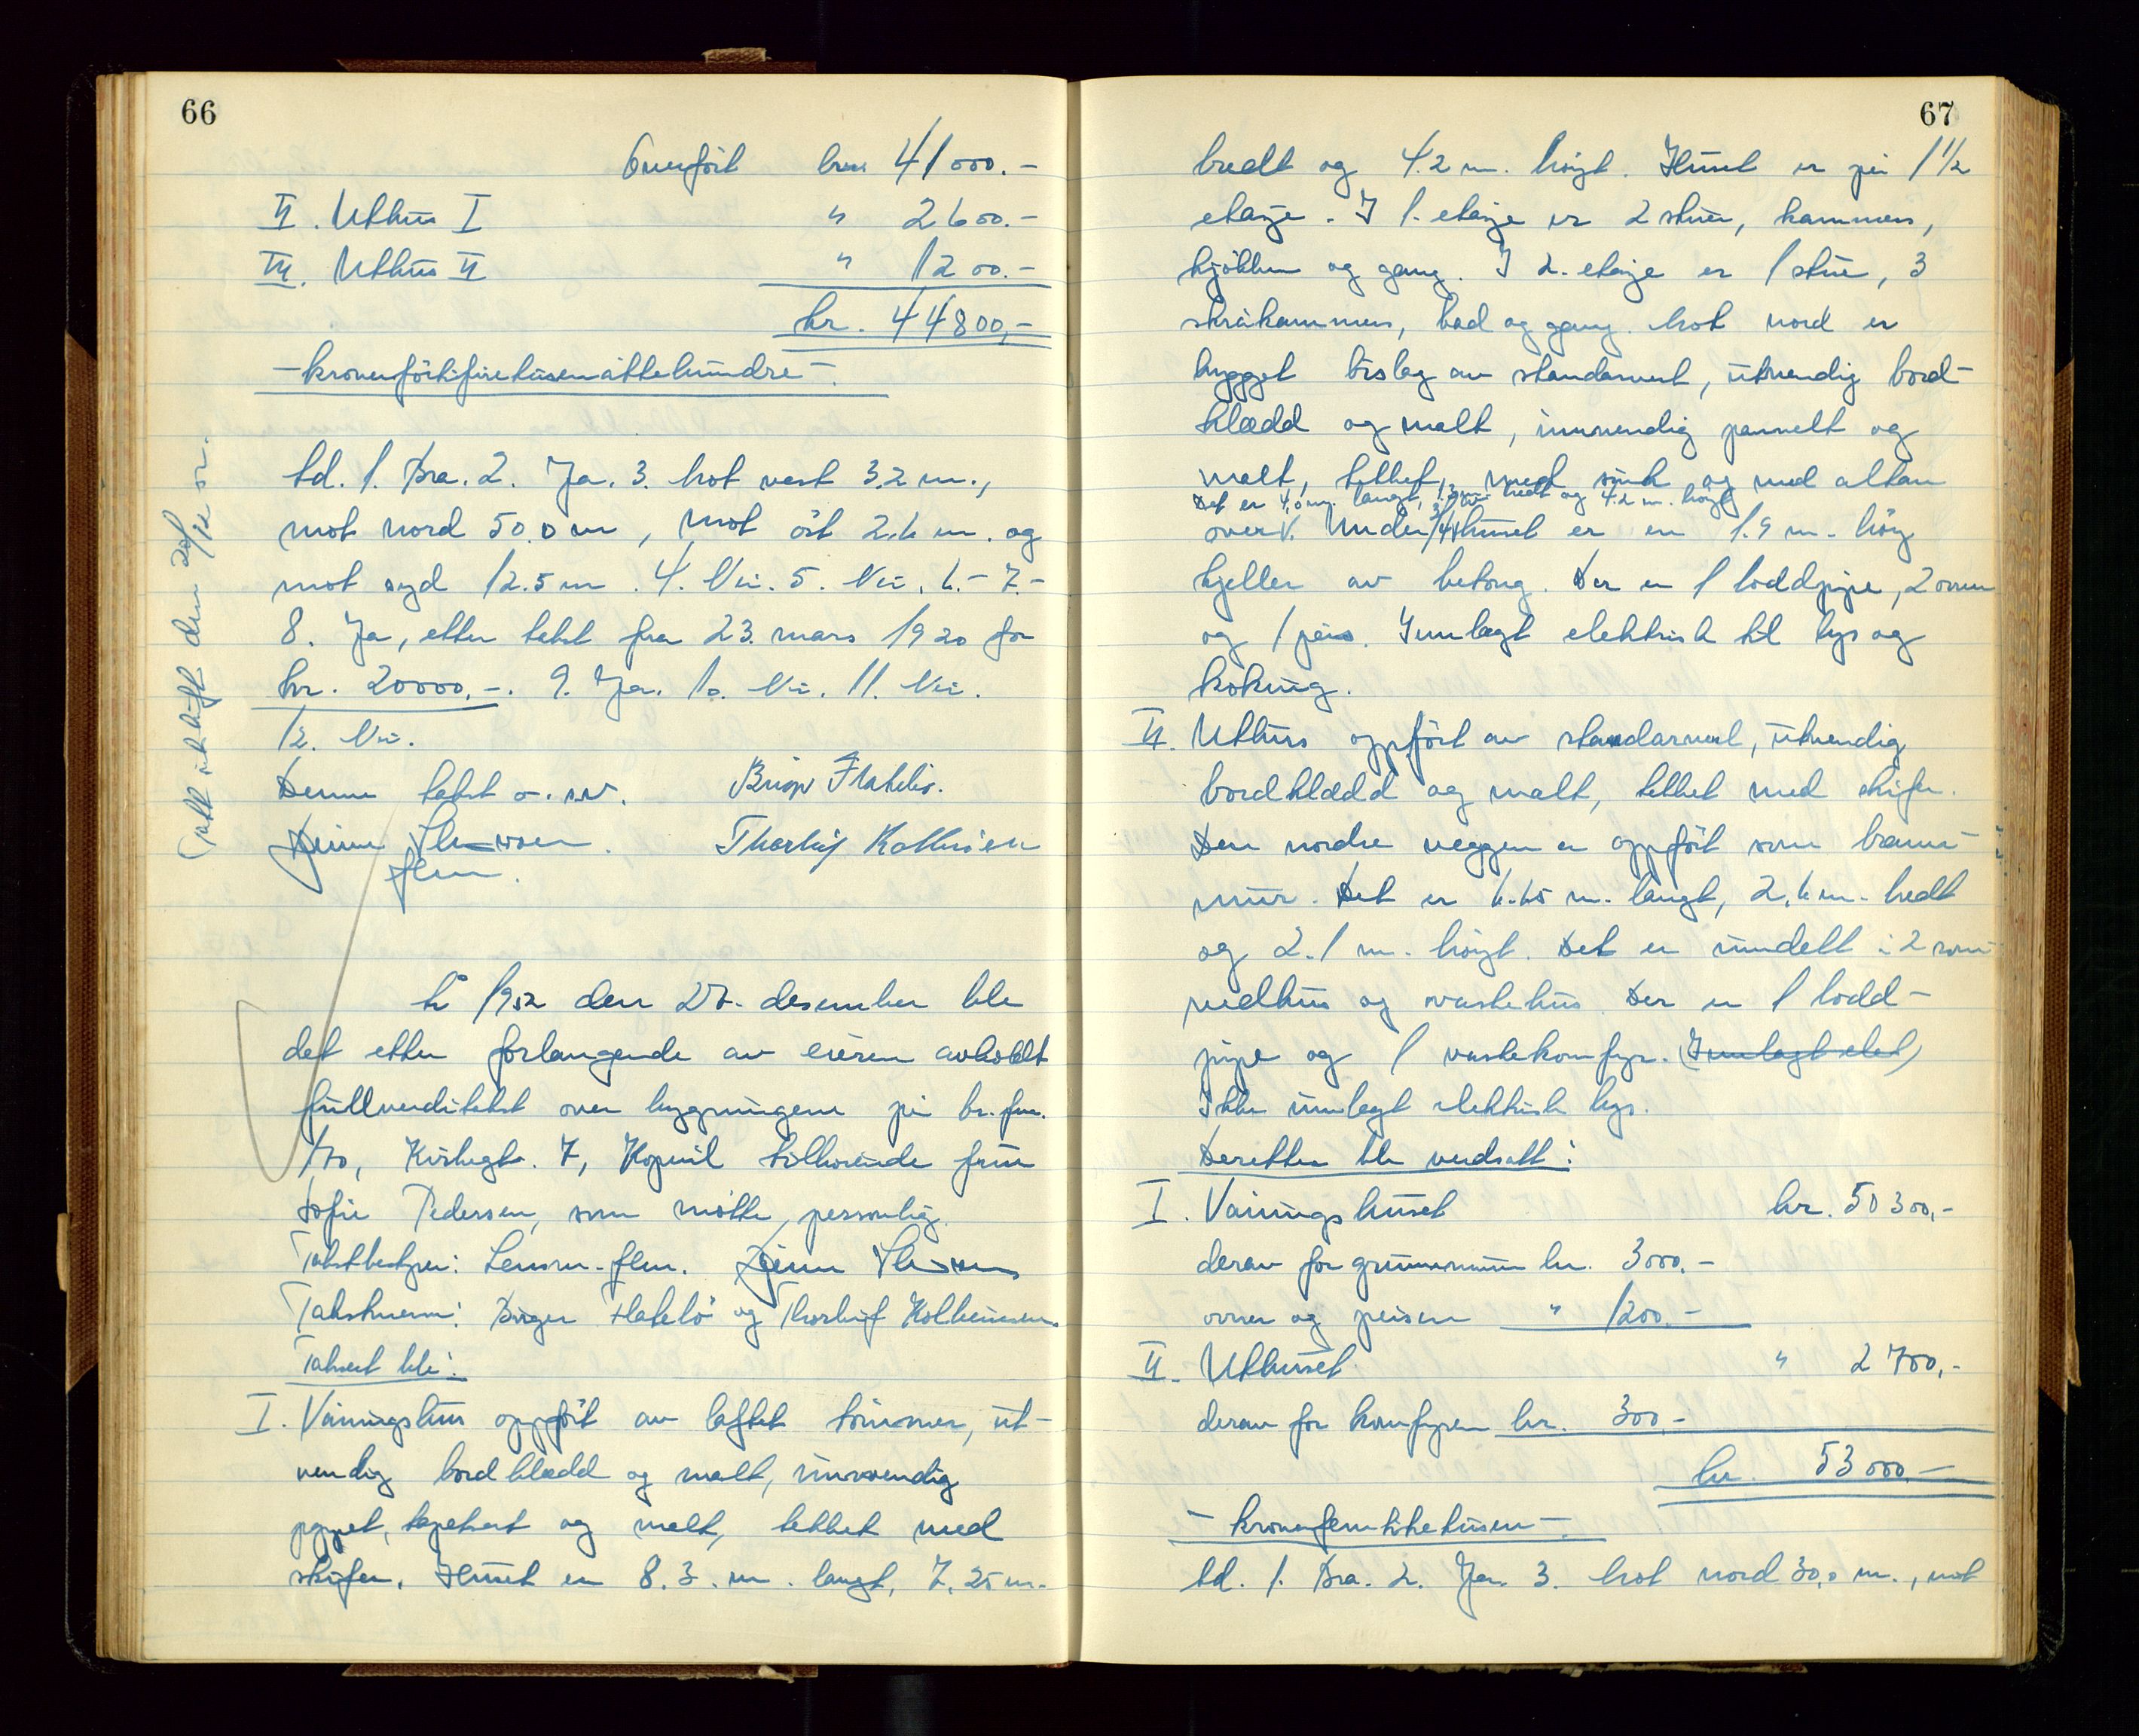 66
Overført kr. 41000.-
II. Uthus I " 2600.-
III. Uthus II " 1200.-
kr. 44800,-
- kronerförtifiretusenåttehundre -.
td. 1. Bra. 2. Ja. 3. Mot vest 3.2 m.,
mot nord 50.0 m, mot öst 2.6 m. og
mot syd 12.5 m. 4. Nei. 5. Nei. 6. - 7. -
8. Ja, etter takst fra 23. mars 1920 for
kr. 20000,-. 9. Ja. 10. Nei. 11. Nei.
12. Nei.
Denne takst o.s.v. Birger Flatelö.
Thorleif Kolbeinsen
flm.
Takst utskrift den 20/12 sn.
År 1952 den 27. desember ble
det etter forlangende av eieren avholdt
fullverditakst over bygningene på br.fnr.
170, Kirkegt. 7, Kopervik tilhörende frue
Sofie Pedersen, som mötte personlig.
Takstbestyrer: Lensm.flm.
Takstmenn: Birger Flatelö og Thorleif Kolbeinsen
Taksert ble:
I. Våningshus oppfört av laftet tömmer, ut-
vendig bordklædd og malt, innvendig
pappet, tapetsert og malt, tekket med
skifer. Huset er 8.3. m. langt, 7.25 m.
67
bredt og 4.2 m. höyt. Huset er på 1 1/2
etasje. I 1. etasje er 2 stuer, kammers,
kjökken og gang. I 2. etasje er 1 stue, 3
skråkammers, bad og gang. Mot nord er
bygget bislag av standarverk, utvendig bord-
klædd og malt, innvendig pannelt og
malt, tekket med sink og med altan
Det er 4,0 m. langt, bredt og 4.2 m. höyt
over. Under 3/4 huset er en 1.9 m. höy
kjeller av betong. Der er 1 loddpipe, 2 ovner
og 1 peis. Innlagt elektrisk til lys og
koking.
II. Uthus oppfört av standarverk, utvendig
bordklædd og malt, tekket med skifer.
Den nordre veggen er oppfört som brann-
mur. Det er 6.65 m. langt, 2,6 m. bredt
og 2.1 m. höyt. Det er inndelt i 2 rom
vedhus og vaskehus. Der er 1 lodd-
pipe og 1 vaskekomfyr. (Innlagt elek)
Ikke innlagt elektrisk lys.
Deretter ble verdsatt:
I. Våningshuset kr. 50300,-
derav for grunnmuren kr. 3000.-
ovner og peisen " 1200.-
II. Uthuset " 2700,-
derav for komfyren kr. 300,-
kr. 53000.-
- kronerfemtitretusen -.
td. 1. Bra. 2. Ja. 3. Mot nord 30,0 m., mot